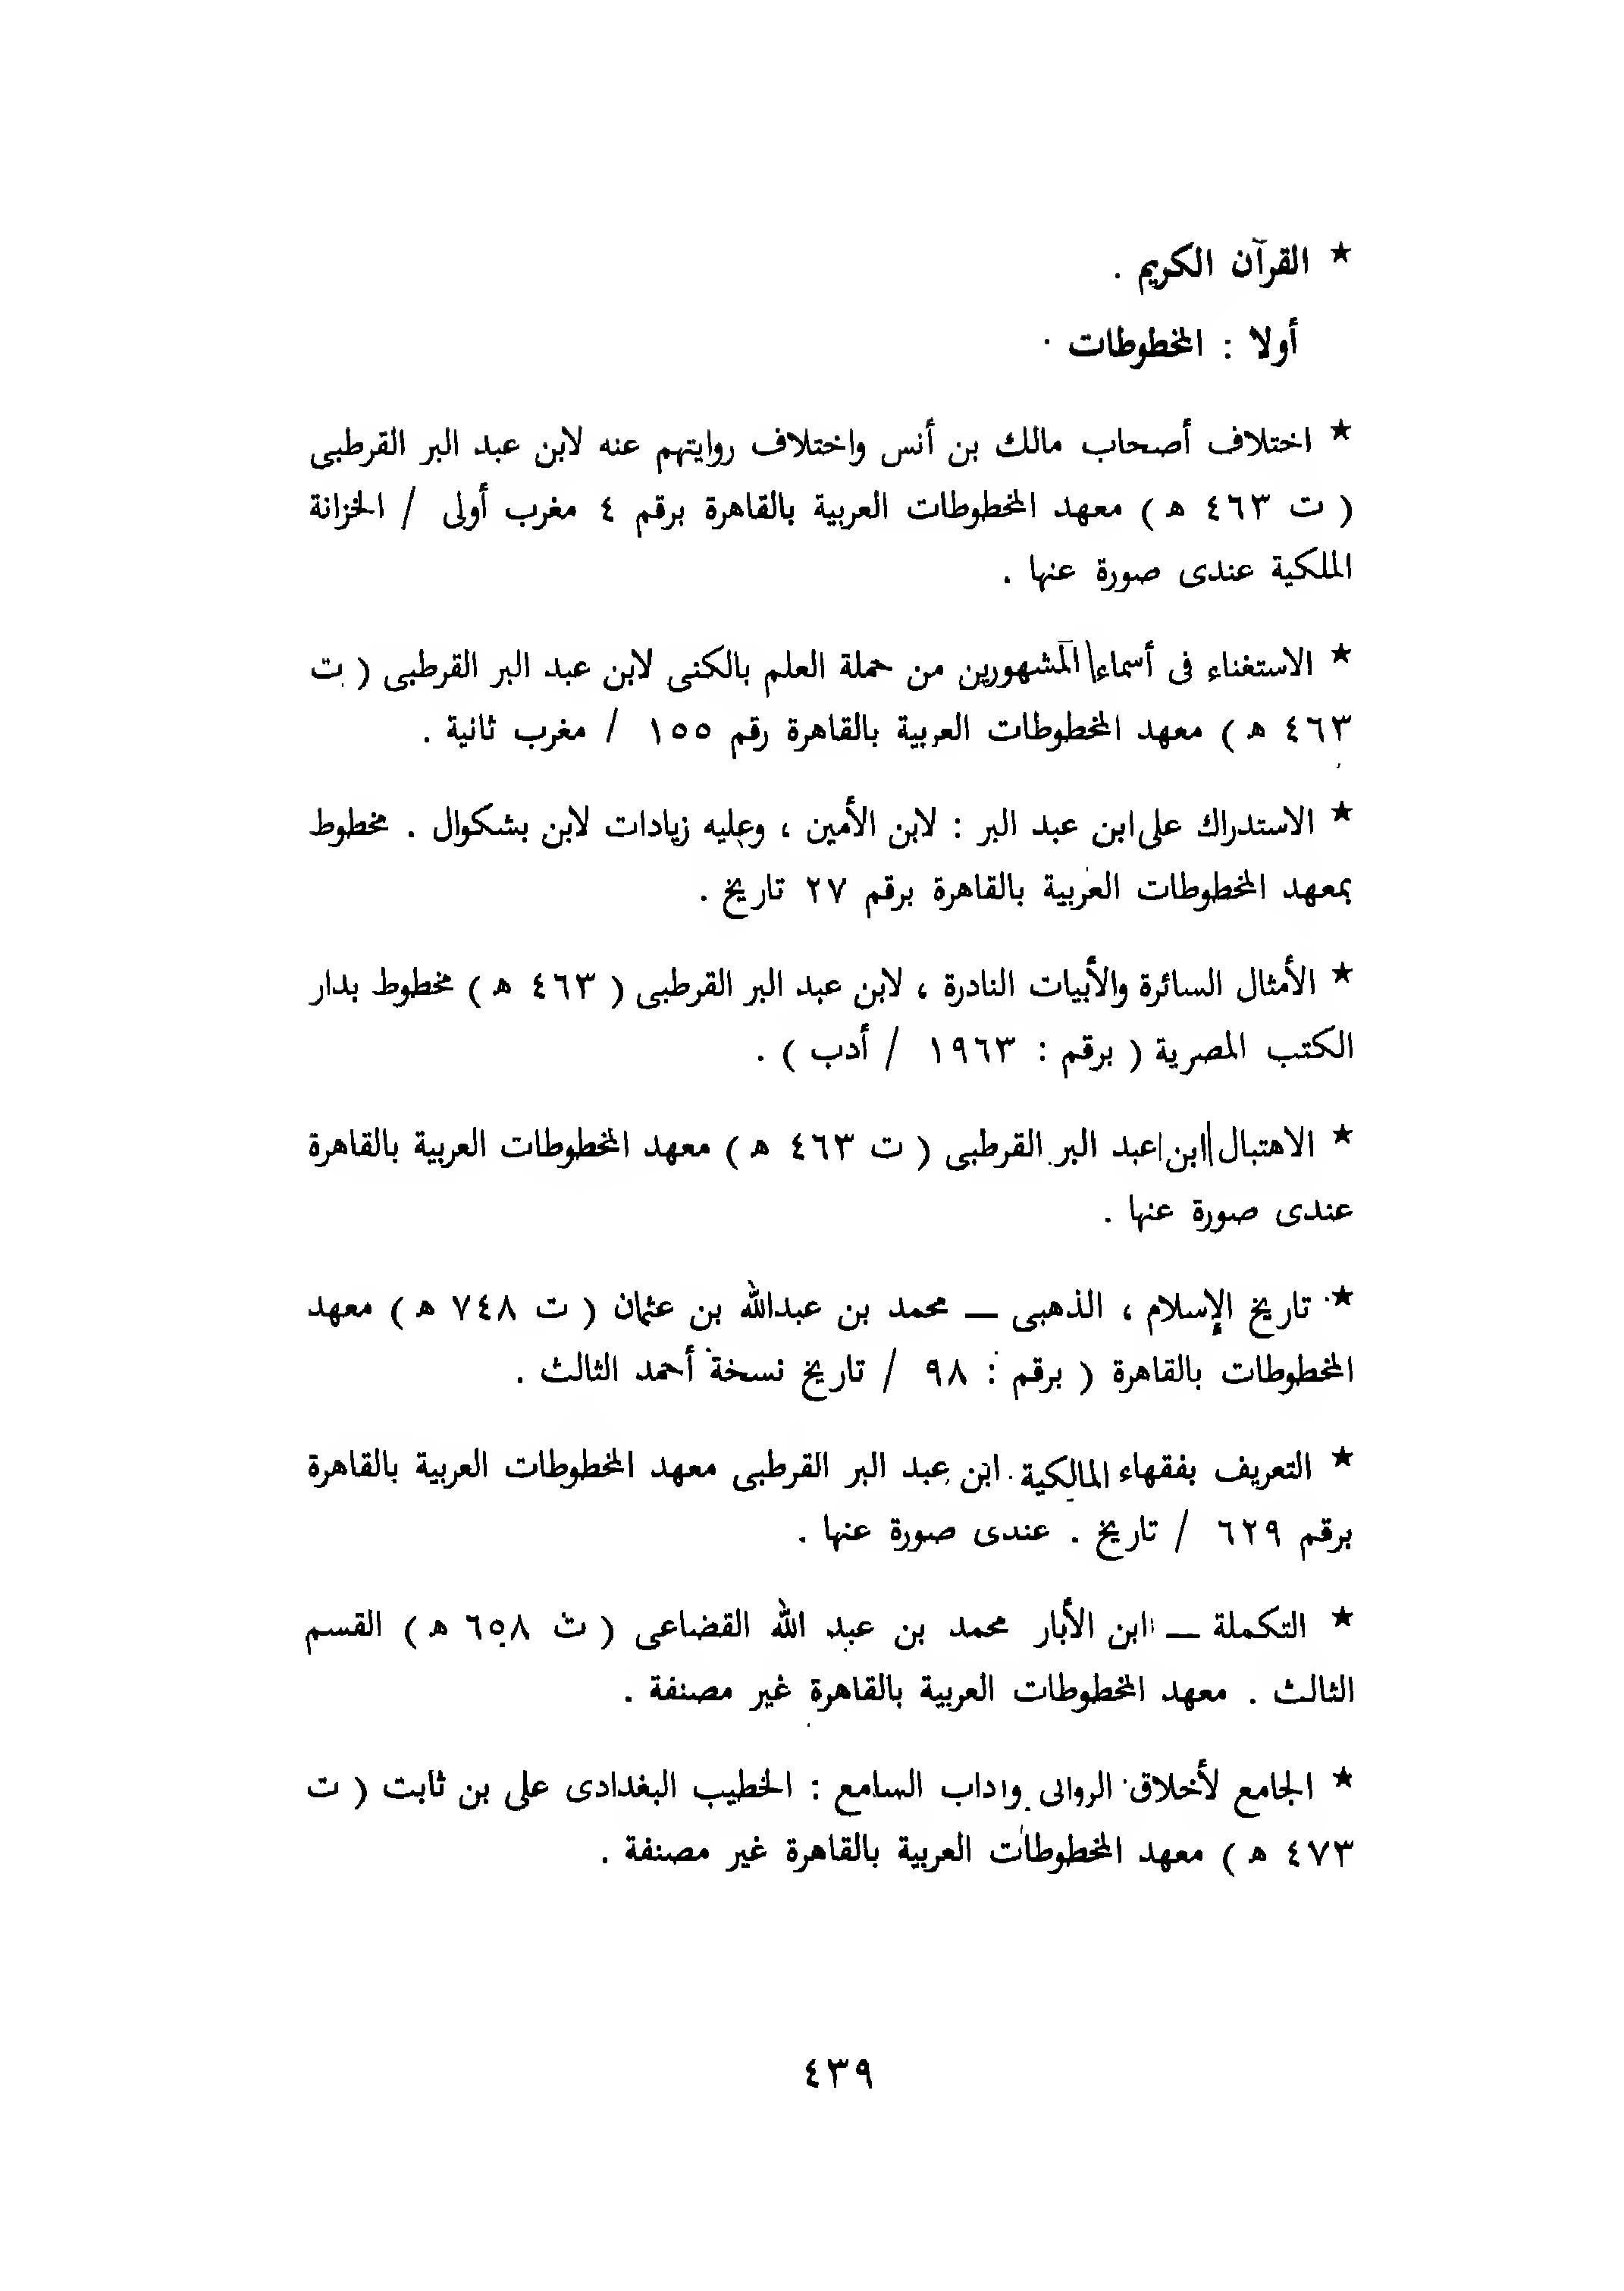 ★ القرآن الكريم .
أولا : المخطوطات .
★ اختلاف أصحاب مالك بن أنس واختلاف روايتهم عنه لابن عبد البر القرطبى
( ت ٤٦٣ ه ) معهد المخطوطات العربية بالقاهرة برقم ٤ مغرب أولى / الخزانة
الملكية عندى صورة عنها .
★ الاستغناء فى أسماء المشهورين من حملة العلم بالكنى لابن عبد البر القرطبى ( ت
٤٦٣ ه ) معهد المخطوطات العربية بالقاهرة رقم ١٥٥ / مغرب ثانية .
★ الاستدراك على ابن عبد البر : لابن الأمين ، وعليه زيادات لابن بشكوال . مخطوط
بمعهد المخطوطات العربية بالقاهرة برقم ٢٧ تاريخ .
★ الأمثال السائرة والأبيات النادرة ، لابن عبد البر القرطبى ( ٤٦٣ ه ) مخطوط بدار
الكتب المصرية ( برقم : ١٩٦٣ / أدب ) .
★ الاهتبال ابن عبد البر القرطبى ( ت ٤٦٣ ه ) معهد المخطوطات العربية بالقاهرة
عندى صورة عنها .
★ تاريخ الإسلام ، الذهبى ـــ محمد بن عبدالله بن عثمان ( ت ٧٤٨ ه ) معهد
المخطوطات بالقاهرة ( برقم : ٩٨ / تاريخ نسخة أحمد الثالث .
★ التعريف بفقهاء المالكية ابن عبد البر القرطبى معهد المخطوطات العربية بالقاهرة
برقم ٦٢٩ / تاريخ . عندى صورة عنها .
★ التكملة ـــ ابن الأبار محمد بن عبد الله القضاعى ( ت ٦٥٨ ه ) القسم
الثالث . معهد المخطوطات العربية بالقاهرة غير مصنفة .
★ الجامع لأخلاق الروالى واداب السامع : الخطيب البغدادى على بن ثابت ( ت
٤٧٣ ه ) معهد المخطوطات العربية بالقاهرة غير مصنفة .
٤٣٩